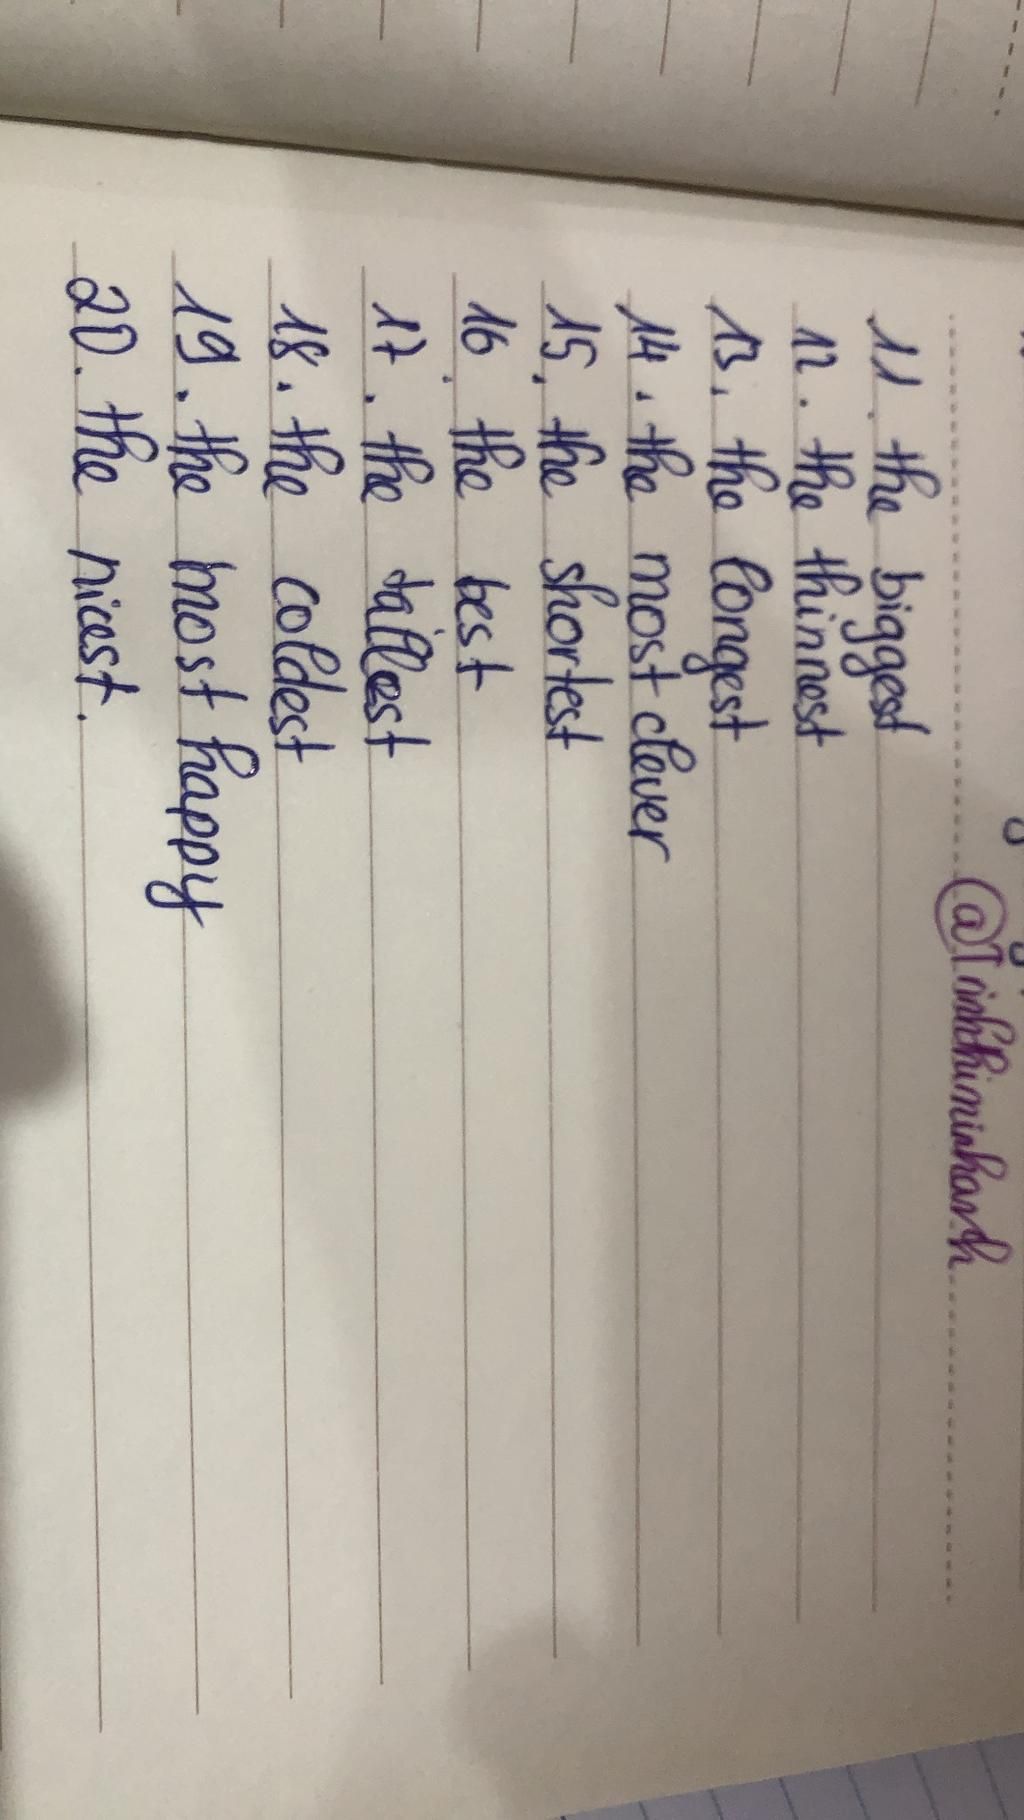 @Trinhthiminhanh
11. the biggest
12. the thinnest
13. the longest
14. the most clever
15. the shortest
16. the best
17. the tallest
18. the coldest
19. the most happy
20. the nicest.